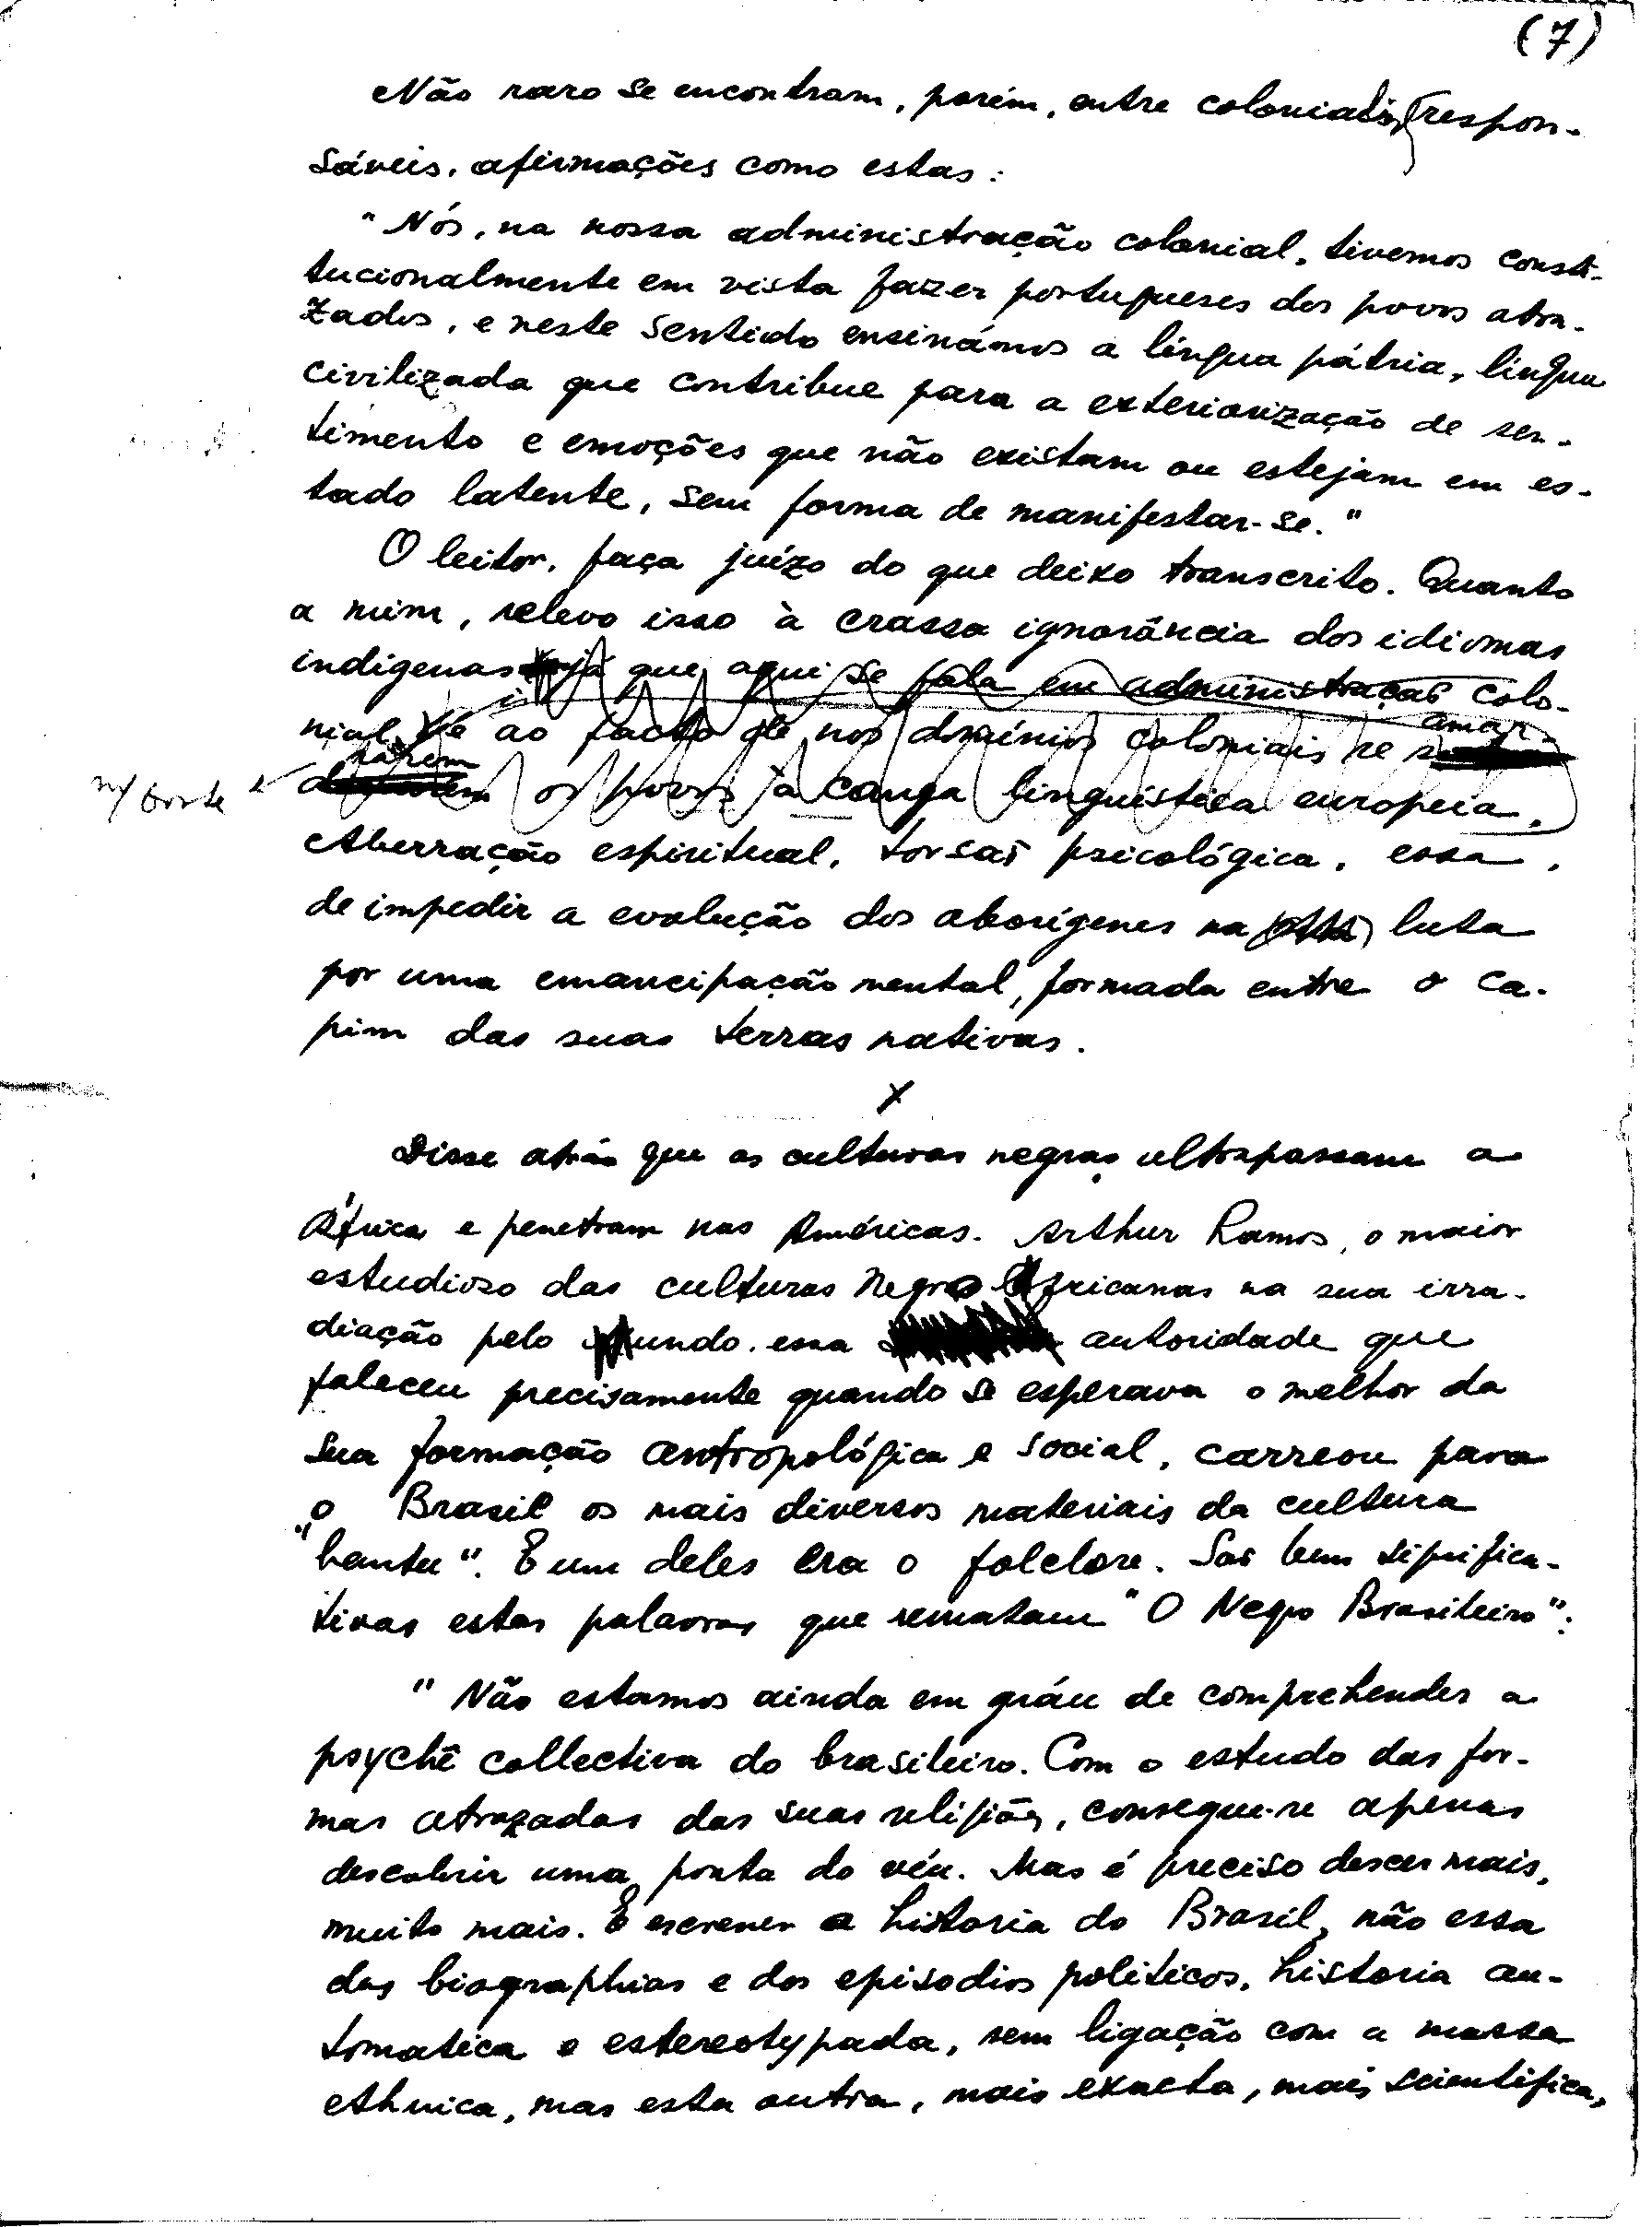 (7)
Não raro se encontram, porém, entre coloniais, respon-
sáveis, afirmações como estas:
"Nós, na nossa administração colonial, tivemos consti-
tucionalmente em vista fazer portugueses dos povos atra-
zados, e neste sentido ensinámos a língua pátria, língua
civilizada que contribue para a exteriorização de sen-
timento e emoções que não existam ou estejam em es-
tado latente, sem forma de manifestar-se."
O leitor, faça juízo do que deixo transcrito. Quanto
a mim, relevo isso à crassa ignorância dos idiomas
indígenas já que aqui se fala em administração colo-
nial, e ao facto de nos domínios coloniais se amar-
rarem os povos à canga linguística europeia.
Aberração espiritual, torsão psicológica, essa,
de impedir a evolução dos aborígenes na luta
por uma emancipação mental, formada entre o ca-
pim das suas terras nativas.
x
Disse atrás que as culturas negras ultrapassam a
África e penetram nas Américas. Arthur Ramos, o maior
estudioso das culturas Negro Africanas na sua irra-
diação pelo Mundo, essa autoridade que
faleceu precisamente quando se esperava o melhor da
sua formação antropológica e social, carreou para
o Brasil os mais diversos materiais da cultura
"bantu". E um deles era o folclore. São bem significa-
tivas estas palavras que rematam "O Negro Brasileiro":
"Não estamos ainda em gráu de comprehender a
psychê collectiva do brasileiro. Com o estudo das for-
mas atrazadas das suas religiões, consegue-se apenas
descobrir uma ponta do véu. Mas é preciso descer mais,
muito mais. E escrever a historia do Brasil, não essa
das biographias e dos episodios politicos, historia au-
tomatica e estereotypada, sem ligação com a massa
ethnica, mas esta outra, mais exacta, mais scientifica,